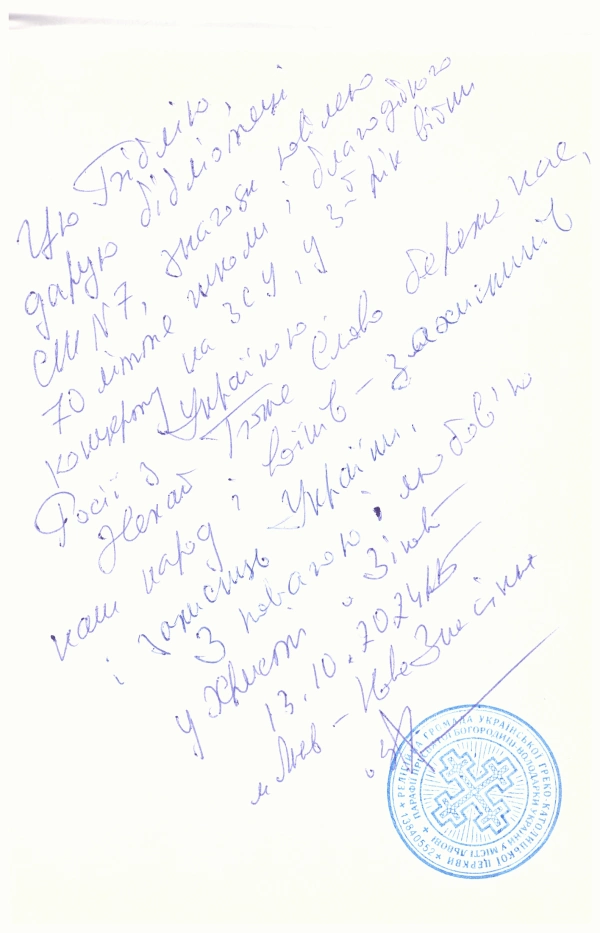 Цю Біблію,
дарую бібліотеці
СШ №7, знагоди ювілею
70 ліття школи і благодійного
концерту на ЗСУ, у 3-й рік війни
Росії з Україною.
Нехай Боже Слово береже нас,
наш народ і воїнів –
і Захисників України.
З повагою і любов'ю
у Христі о. Зіновій
13.10.2024
м. Львів – Нове Знесіння
РЕЛІГІЙНА ГРОМАДА УКРАЇНСЬКОЇ ГРЕКО-КАТОЛИЦЬКОЇ ЦЕРКВИ
ПАРАФІЇ ПРЕСВЯТОЇ БОГОРОДИЦІ-ВОЛОДАРКИ УКРАЇНИ У МІСТІ ЛЬВОВІ
13840552